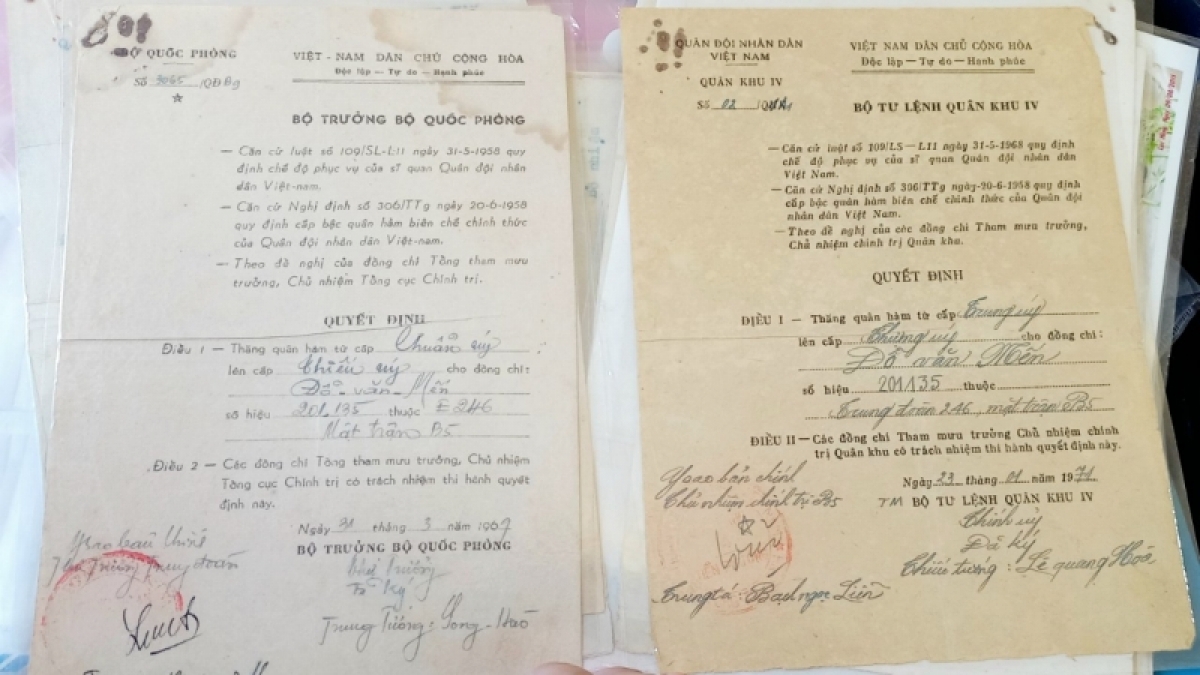 BỘ QUỐC PHÒNG
Số 3065 /QĐBg
VIỆT - NAM DÂN CHỦ CỘNG HÒA
Độc lập — Tự do — Hạnh phúc
BỘ TRƯỞNG BỘ QUỐC PHÒNG
— Căn cứ luật số 109/SL-L11 ngày 31-5-1958 quy
định chế độ phục vụ của sĩ quan Quân đội nhân
dân Việt-nam.
— Căn cứ Nghị định số 306/TTg ngày 20-6-1958
quy định cấp bậc quân hàm biên chế chính thức
của Quân đội nhân dân Việt-nam.
— Theo đề nghị của đồng chí Tổng tham mưu
trưởng, Chủ nhiệm Tổng cục Chính trị.
QUYẾT ĐỊNH
Điều 1 — Thăng quân hàm từ cấp Chuẩn úy
lên cấp Thiếu úy cho đồng chí:
Đỗ văn Mến
số hiệu 201.135 thuộc E246
Mặt trận B5
Điều 2 — Các đồng chí Tổng tham mưu trưởng, Chủ nhiệm
Tổng cục Chính trị có trách nhiệm thi hành quyết
định này.
Ngày 31 tháng 3 năm 1969
BỘ TRƯỞNG BỘ QUỐC PHÒNG
Đã Ký
Trung Tướng: Song - Hào
Trưởng trung đoàn
QUÂN ĐỘI NHÂN DÂN
VIỆT NAM
QUÂN KHU IV
Số 02
VIỆT NAM DÂN CHỦ CỘNG HÒA
Độc lập — Tự do — Hạnh phúc
BỘ TƯ LỆNH QUÂN KHU IV
— Căn cứ luật số 109/LS — L11 ngày 31-5-1968 quy định
chế độ phục vụ của sĩ quan Quân đội nhân dân
Việt Nam.
— Căn cứ Nghị định số 306/TTg ngày-20-6-1958 quy định
cấp bậc quân hàm biên chế chính thức của Quân đội
nhân dân Việt Nam.
— Theo đề nghị của các đồng chí Tham mưu trưởng,
Chủ nhiệm chính trị Quân khu.
QUYẾT ĐỊNH
ĐIỀU I — Thăng quân hàm từ cấp Trung úy
lên cấp Thượng úy cho đồng chí:
Đỗ văn Mến
số hiệu 201135 thuộc
Trung đoàn 246, mặt trận B5
ĐIỀU II — Các đồng chí Tham mưu trưởng Chủ nhiệm chính
trị Quân khu có trách nhiệm thi hành quyết định này.
Ngày 23 tháng 01 năm 1971
TM BỘ TƯ LỆNH QUÂN KHU IV
Chính úy
Đã ký
Thiếu tướng: Lê quang Hòa
Y sao bản chính
Chủ nhiệm chính trị B5
Trung tá: Bạch ngọc Liễn